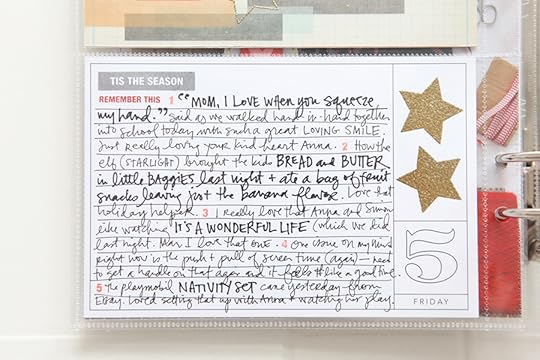 TIS THE SEASON
REMEMBER THIS 1 "MOM, I LOVE WHEN YOU SQUEEZE
my HAND." Said as we walked hand in hand together
into school today with such a great LOVING SMILE.
Just really loving your kind heart Anna. 2 How the
elf (STARLIGHT) brought the kids BREAD and BUTTER
in little BAGGIES last night + ate a bag of fruit
snacks leaving just the banana flavor. Love that
holiday helper. 3 I really love that Anna and Simon
like watching IT'S A WONDERFUL LIFE (which we did
last night. Man I love that one. 4 One thing on my mind
right now is the push + pull of screen time (again) — need
to get a handle on that again and it feels like a good time.
5 The playmobil NATIVITY SET came yesterday from
Ebay. Loved setting that up with Anna + watching her play.
5
FRIDAY
5